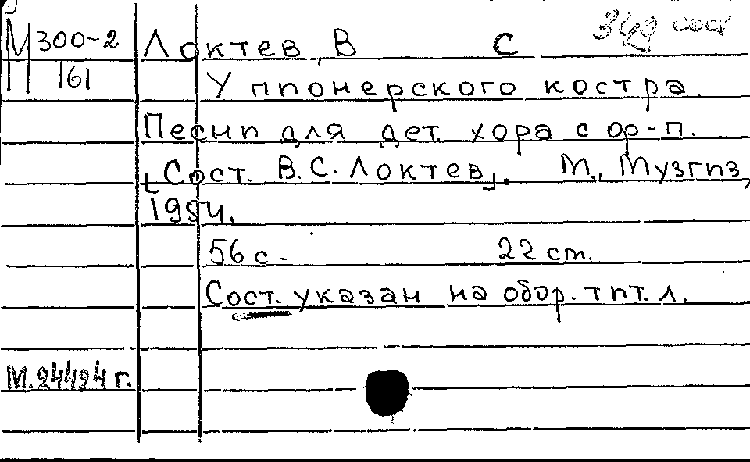 М 300-2 Локтев, В С
161 У пионерского костра.
Песни для дет. хора с ор-п.
[Сост. В.С. Локтев]. М., Музгиз,
1954.
56 с. 22 см.
Сост. указан на обор. тит. л.